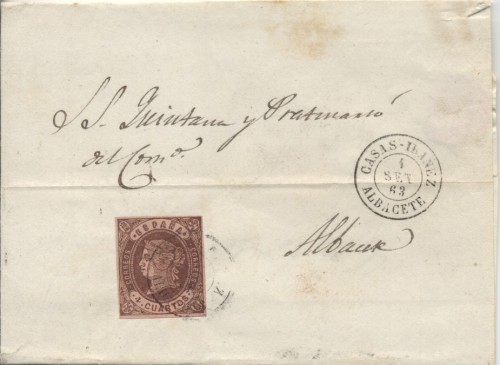 S. S. Quintana y
del Com.º
CASAS-IBAÑEZ
1
SET
63
ALBACETE
Albacete
ESPAÑA
CORREOS
4 CUARTOS